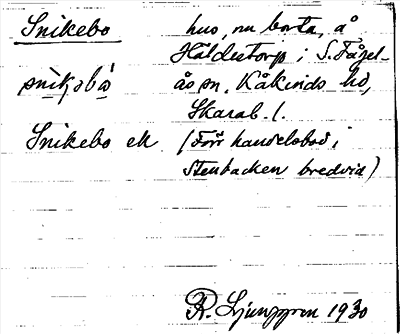 Snikebo hus, nu borta, å
Håldestorp i S. Fågel-
snìkəbò ås sn, Kåkinds hd,
Skarab. l.
Snikebo ek (Förr handelsbod i
Stenbacken bredvid)
R. Ljunggren 1930